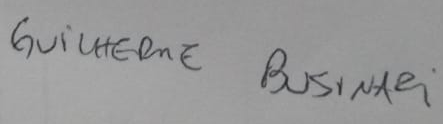 GUILHERME BUSINARI